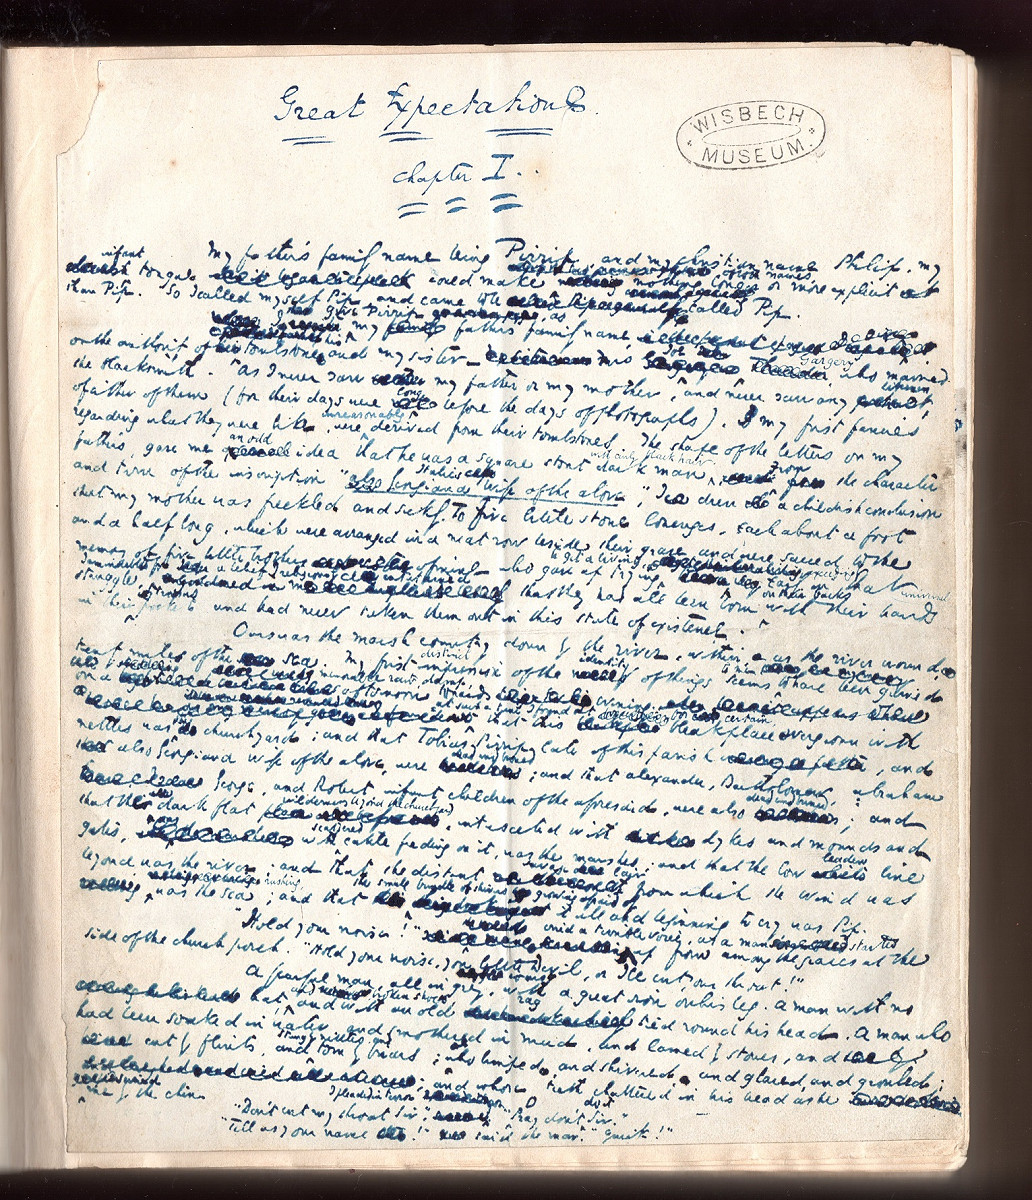 Great Expectations.
WISBECH
MUSEUM.
Chapter I.
My father's family name being Pirrip, and my christian name Philip, my
infant tongue could make of both names nothing longer or more explicit
than Pip. So I called myself Pip, and came to be called Pip.
I give Pirrip as my father's family name
on the authority of his tombstone and my sister – Mrs Joe Gargery, who married
the blacksmith. As I never saw my father or my mother, and never saw any likeness
of either of them (for their days were long before the days of photographs), my first fancies
regarding what they were like, were unreasonably derived from their tombstones. The shape of the letters on my
father's, gave me an odd idea that he was a square stout dark man with curly black hair. From the character
and turn of the inscription "Also Georgiana wife of the above", I drew a childish conclusion
that my mother was freckled and sickly. To five little stone lozenges, each about a foot
and a half long, which were arranged in a neat row beside their grave, and were sacred to the
memory of five little brothers of mine – who gave up trying to get a living exceedingly early in that universal
struggle, I am indebted for a belief I religiously entertained that they had all been born on their backs with their hands
in their pockets and had never taken them out in this state of existence.
Ours was the marsh country, down by the river, within, as the river wound,
twenty miles of the sea. My first distinct impression of the identity of things seems to me to have been gained
on a raw afternoon towards evening. At such a time I found out
that this bleak place overgrown with
nettles was the churchyard; and that Tobias Pirrip, late of this parish, and
also Georgiana wife of the above, were dead and buried; and that Alexander, Bartholomew, Abraham
and Robert, infant children of the aforesaid, were also dead and buried; and
that the dark flat wilderness beyond the churchyard, intersected with dykes and mounds and
gates, with scattered cattle feeding on it, was the marshes; and that the low leaden line
beyond was the river; and that the distant savage lair from which the wind was
rushing, was the sea; and that the small bundle of shivers growing afraid of it all and beginning to cry was Pip.
"Hold your noise!" cried a terrible voice, as a man started up from among the graves at the
side of the church porch. "Hold your noise, you little Devil, or I'll cut your throat!"
A fearful man, all in grey, with a great iron on his leg. A man with no
hat, and with broken shoes, and with an old rag tied round his head. A man who
had been soaked in water, and smothered in mud, and lamed by stones, and
cut by flints, and stung by nettles, and torn by briars; who limped, and shivered, and glared, and growled;
and whose teeth chattered in his head as he
seized me by the chin.
"O Don't cut my throat Sir," I pleaded in terror. "Pray don't do it Sir."
"Tell us your name!" said the man. "Quick!"